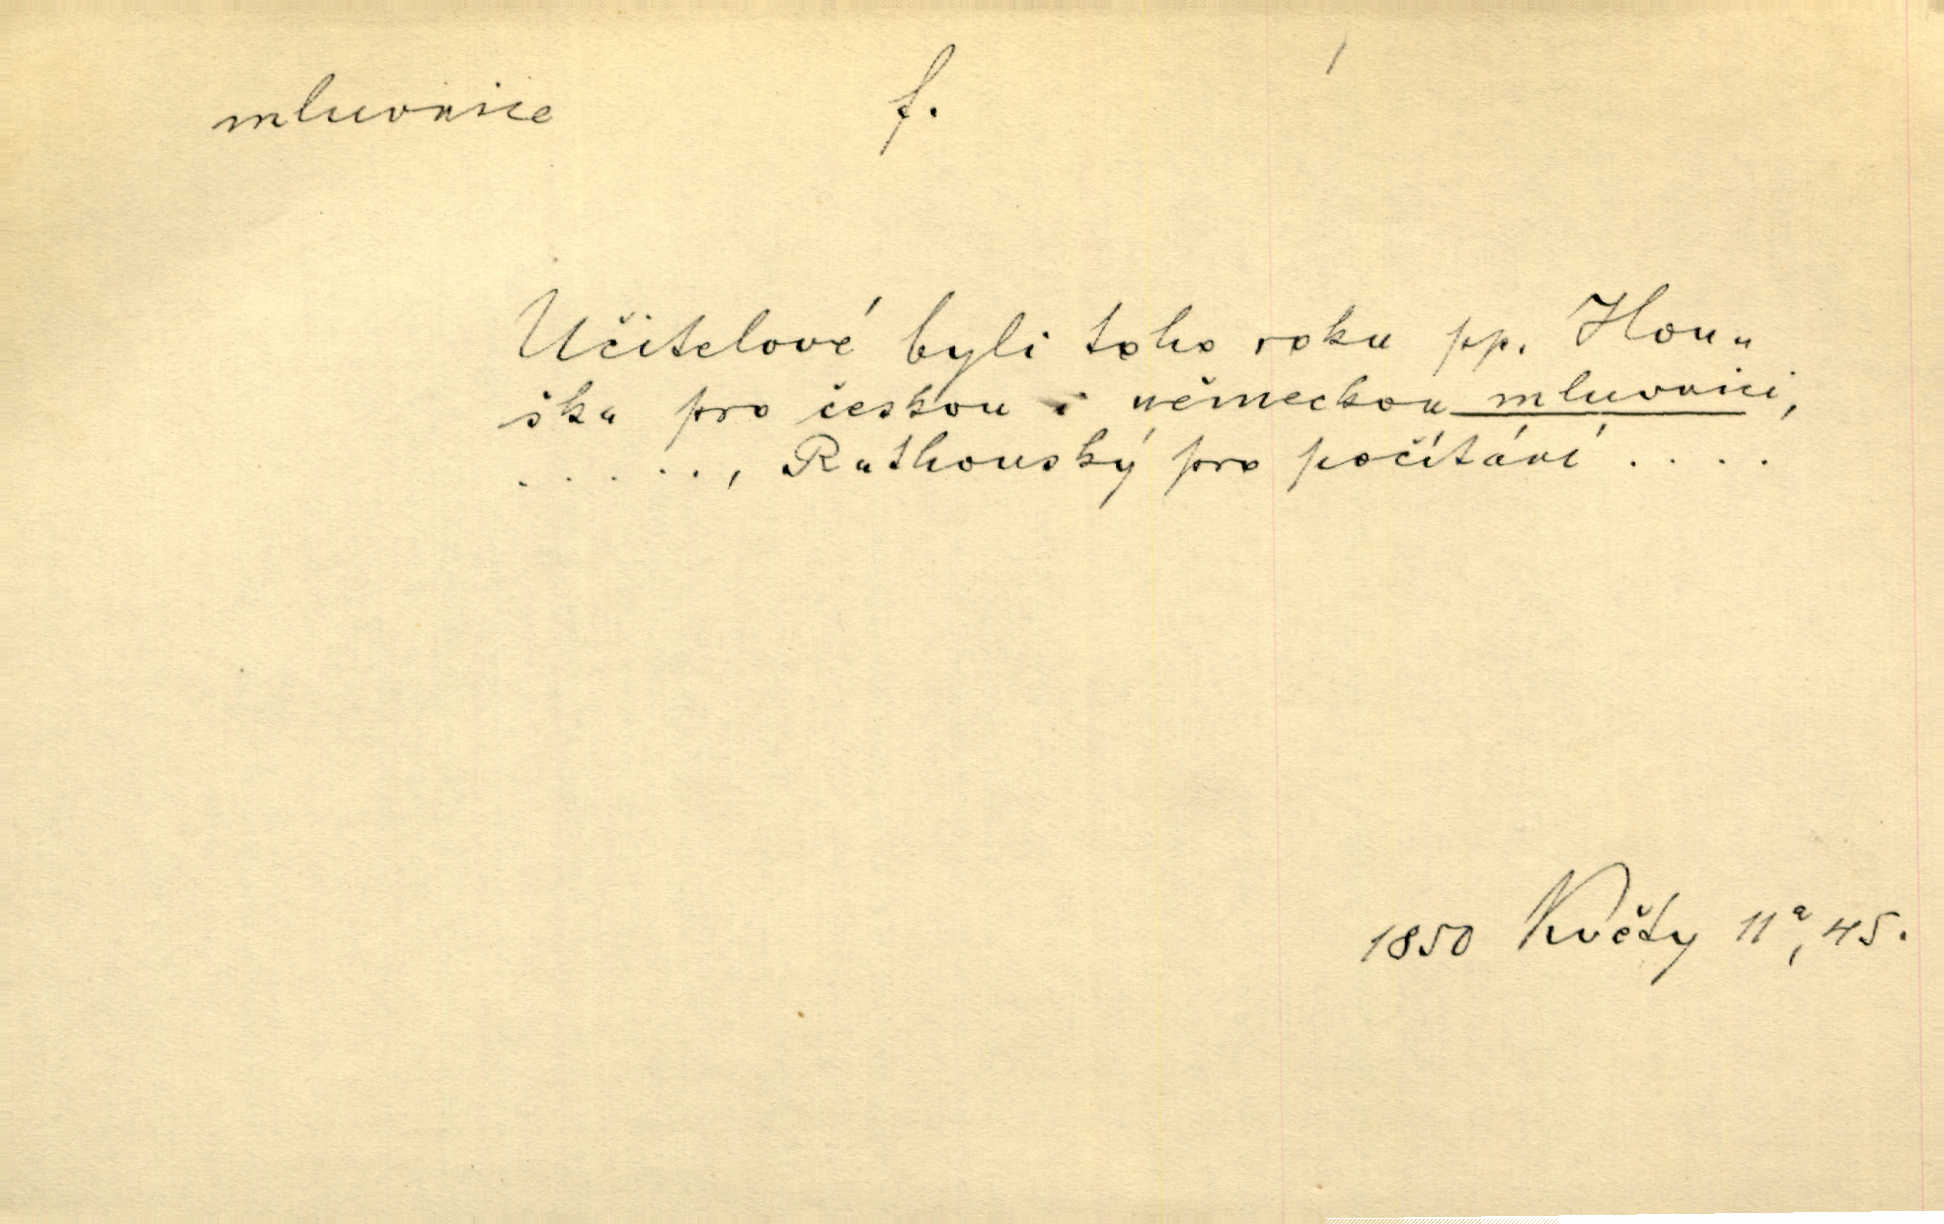 mluvnice f.
Učitelové byli toho roku pp. Hou„
ška pro českou i německou mluvnici,
. . . . . ., Rathouský pro počítání . . . .
1850 Květy 11ª, 45.